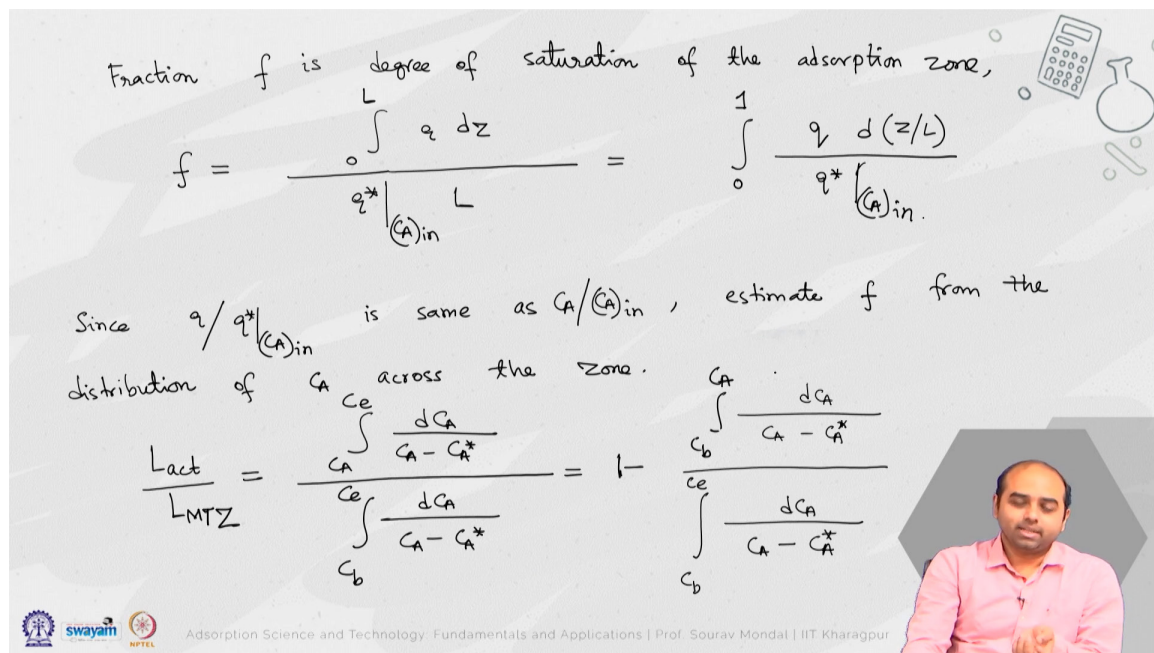 Fraction f is degree of saturation of the adsorption zone,
f = ∫₀ᴸ q dz / (q*|(CA)in L) = ∫₀¹ q d(z/L) / q*|(CA)in.
Since q/q*|(CA)in is same as CA/(CA)in, estimate f from the
distribution of CA across the zone.
Lact / LMTZ = ∫_CA^Ce dCA/(CA - CA*) / ∫_Cb^Ce dCA/(CA - CA*) = 1 - ∫_Cb^CA dCA/(CA - CA*) / ∫_Cb^Ce dCA/(CA - CA*)
swayam
NPTEL
Adsorption Science and Technology Fundamentals and Applications | Prof. Sourav Mondal | IIT Kharagpur